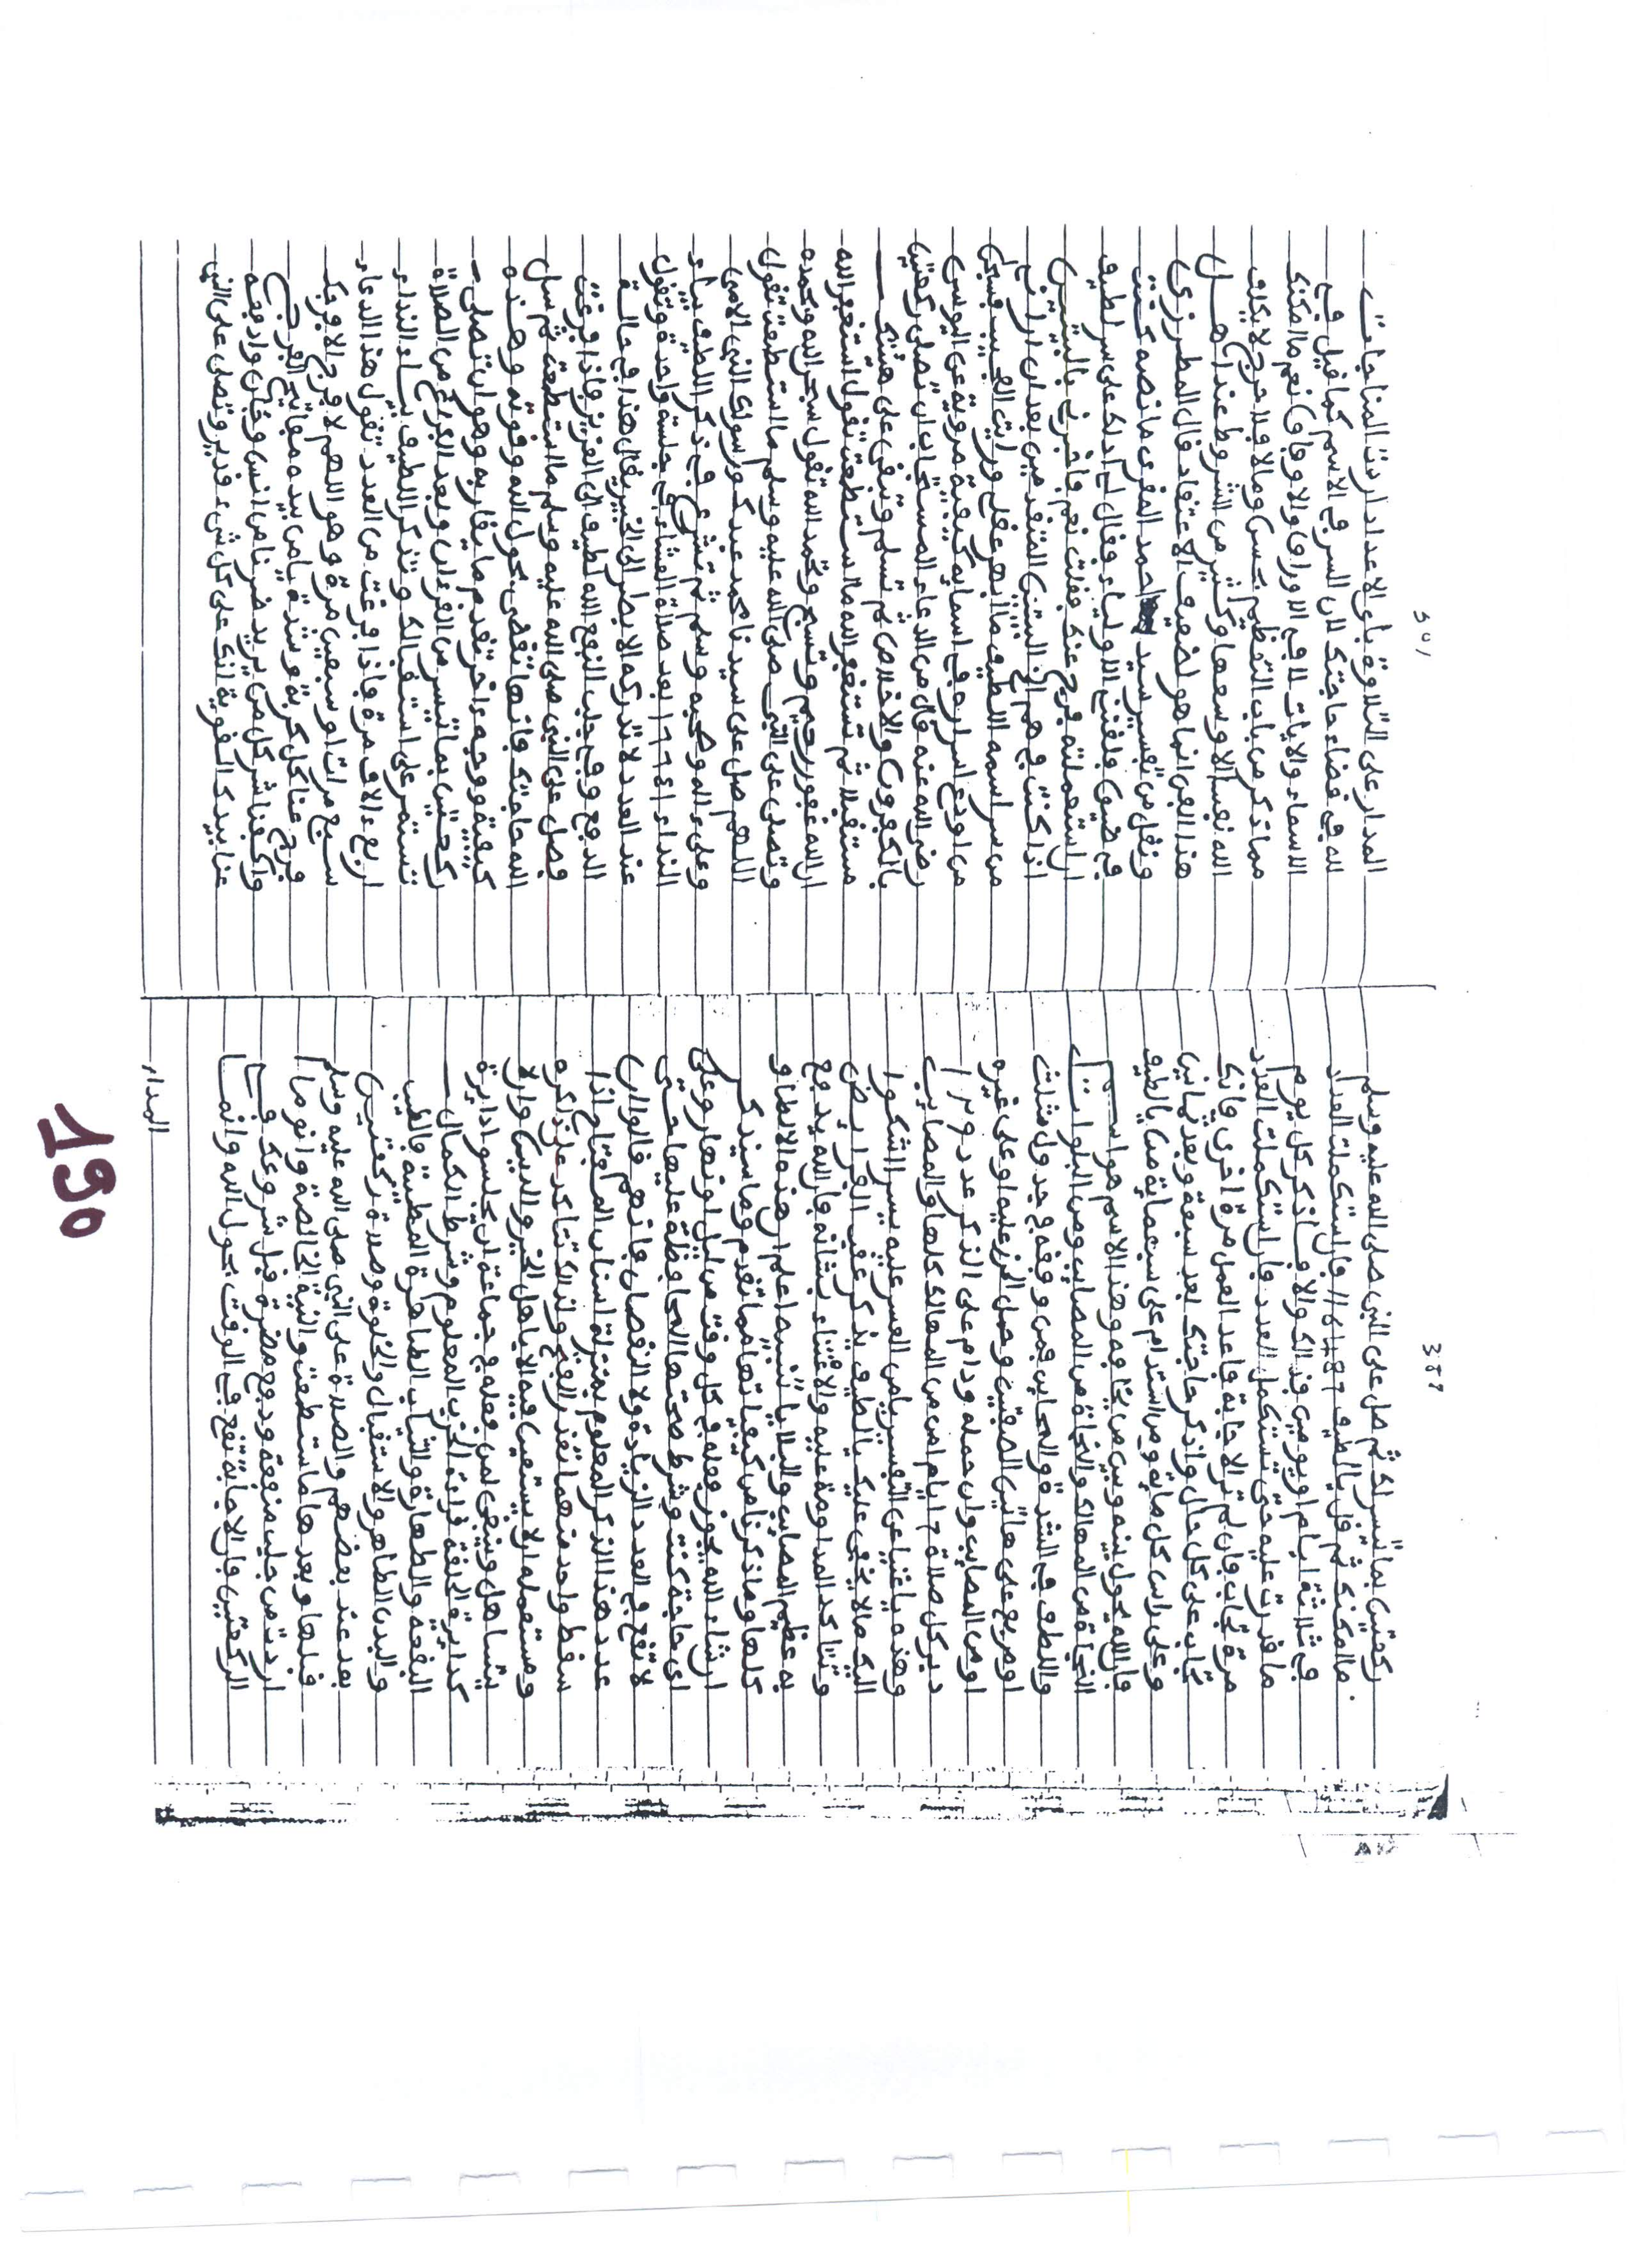 389
ركعتين بما تيسر لك ثم صل على النبي صلى الله عليه وسلم
ما امكنك ثم قل يا لطيف فاذا استكملت العدد
في ثلاثة ايام او يومين فذاك والا فاذكر كل يوم
ما قدرت عليه حتى يستكمل العدد فان استكملت العدد
مرة تجاب وان لم تر الاجابة فاعد العمل مرة اخرى فانك
تجاب على كل حال واذكر حاجتك بعد سبعة وبعد ثمانين
وعلى راس كل ماية ومن استدام على سبعماية من يا لطيف
فان الله يحول بينه وبين من يخافه وهذا الاسم هو اسم
النجاة من المهالك والنجاة من المصايب ومن البلوات
واللطف في الشدة والمحاين فمن وفقه في جدول مثلث
او مربع على هاتين الصفتين وحمل الحرز عليه او على غيره
او من المصايب وان حمله ودام على الذكر عدد
دبر كل صلاة ايام امن من المهالك كلها والمصايب
وهذه يا غنيا عن التفسير يا من العسر عليه يسير اشكوا
اليك ما لا يخفى عليك يا لطيف يذكر عقب الفرايض
وتتاكد المداومة عليه والاعتناء بشانه فان الله يدفع
به عظيم المصايب والبلايا تنبيه اعلم ان هذه الالطاف
كلها وما ذكرنا من كيفياتها مما تقدم وما سيذكر
ان شاء الله يجوز فعله في كل وقت من ليل او نهار وعلى
اي حاجة كنت وشرط صحتها المحافظة عليها حتى
لا تقع في العدد الزيادة ولا النقصان فانهم قالوا ان
عدد هذا الذكر المعلوم بمنزلة اسنان المفتاح اذا
سقط واحد منهما تعذر الفتح ولذلك تتاكد على ذاكره
ومستعمله ان لا يستعين فيه الا باهل الخير والدين وان لا
يتساهل وينبغي لمن فعله في جماعة ان يجلسوا دايرة
كدايرة الحلقة قراءة الحزب المعلوم وشرط الكمال
البقعة والطهارة والثياب الطاهرة المطيبة والطيب
والبدن الطاهر والاستقبال والخلوة وصلاة ركعتين
بعد عند بعضهم والصلاة على النبي صلى الله عليه وسلم
قبلها وبعدها ما استطعت والنية الخالصة وانو ما
اردت من جلب منفعة ودفع مضرة قبل شروعك في
الركعتين فان الاجابة تقع في الوقت بحول الله وانما
المدار
المدار على التلاوة باي الاعداد اردت المناجات
لله في قضاء حاجتك لان السر في الاسم كما قيل في
الاسماء والايات لا في الاوراق والاوفاق نعم ما امكنك
مما ذكر من باب التعظيم بحسن وما لا فلا حرج لا يكلف
الله نفسا الا وسعها وكثير من الشروط عند اهل
هذا الفن انما هو لضعيف الاعتقاد قال المطرزي
ونقل من تفسير سيد احمد المقري ما نصه كنت
في ضيق فلقنت الاولياء فقال لي ادلك على سر لطيف
ان استعملته فرج عنك فقلت نعم فاخبرني بالبيتين
اذا كنت في هم البيتين المتقدمين بعد ان ارايت
من سر اسمه اللطيف ما ابهر عقلي ورايت العجب فسبحن
من اودع اسراره في اسمايه كيفية مروية عن اليوسي
رضي الله عنه قال من الدعاء المستجاب ان تصلي ركعتين
بالكفرون والاخلاص ثم تسلم وتبقى على هيئتك
مستقبلا ثم تستغفر الله ما استطعت تقول استغفر الله
ان الله غفور رحيم وتسبح وتحمد الله تقول سبحن الله وبحمده
وتصلي على النبي صلى الله عليه وسلم ما استطعت تقول
اللهم صل على سيدنا محمد عبدك ورسولك النبي الامي
وعلى ءاله وصحبه وسلم ثم تشرع في ذكر اللطيف بياء
النداء 16641 بعد صلاة العشاء في جلسة واحدة وتقول
عند العدد لا تدركه الابصار الى الخبير يقال هذا في حالة
الدفع وفي جلب النفع الله لطيف الى العزيز فاذا فرغت
فصل على النبي صلى الله عليه وسلم ما استطعت ثم سل
الله حاجتك فانها تقضى بحول الله وقوته وهذه
كيفية ووجه ءاخر تقدم ما يقاربه وهو ان تصلي
ركعتين بما تيسر من القرءان وبعد الفرغ من الصلاة
تستمر على استقبالك وتذكر اللطيف بياء النداء
اربع ءالاف مرة فاذا فرغت من العدد تقول هذا الدعاء
سبع مرات او سبعين مرة وهو اللهم لا فرج الا فرجك
فرج عنا كل كربة وشدة يا من بيده مفاتيح الفرج
واكفنا شر كل من يريد ضرنا من انس وجان وادفعه
عنا بيدك القوية انك على كل شيء قدير وتصلي على النبي
190